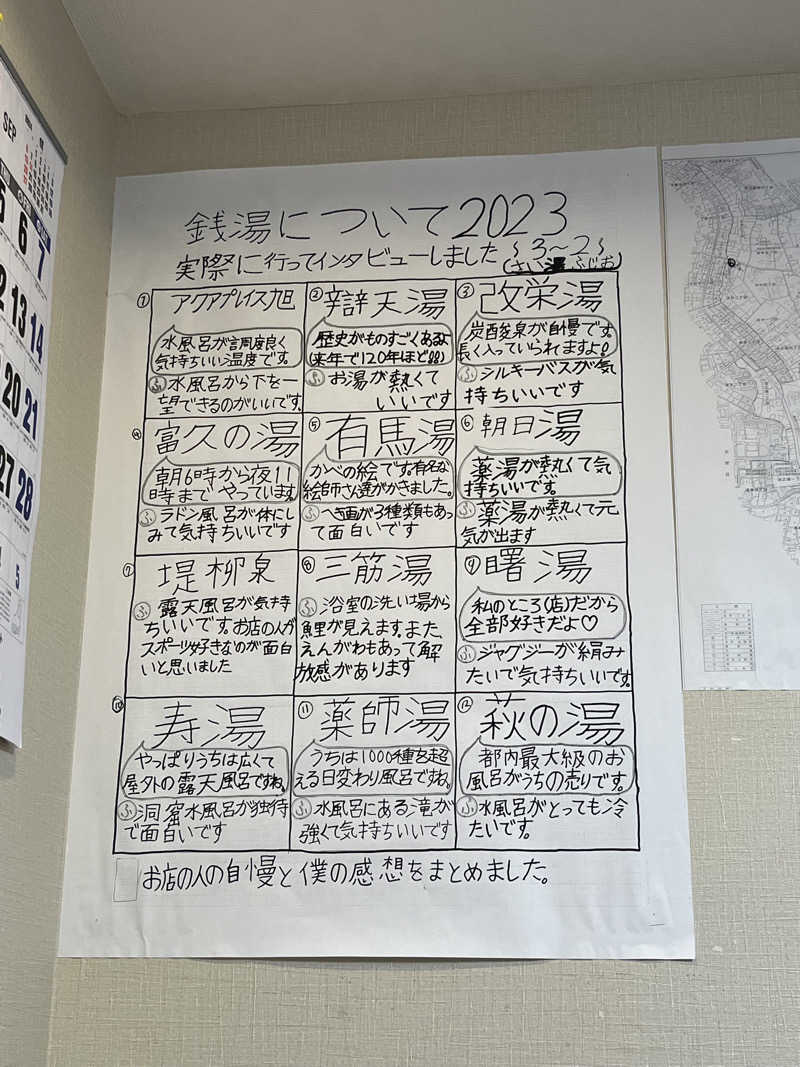 SEP
5 6 7
12 13 14
20 21
27 28
5
銭湯について2023
実際に行ってインタビューしました
～3～2～
(さい湯ふじお)
① アクアプレイス旭
水風呂が調度良く
気持ちいい温度です。
ふ 水風呂から下を一
望できるのがいいです。
② 辯天湯
歴史がものすごくあるよ
(来年で120年ほど!!)
ふ お湯が熱くて
いいです
③ 改栄湯
炭酸泉が自慢です。
長く入っていられますよ!
ふ シルキーバスが気
持ちいいです
④ 富久の湯
朝6時から夜11
時までやっています。
ふ ラドン風呂が体にし
みて気持ちいいです
⑤ 有馬湯
かべの絵です。有名な
絵師さん達がかきました。
ふ へき画が3種類もあっ
て面白いです
⑥ 朝日湯
薬湯が熱くて気
持ちいいです。
ふ 薬湯が熱くて元
気が出ます
⑦ 堤柳泉
ふ 露天風呂が気持
ちいいです。お店の人が
スポーツ好きなのが面白
いと思いました
⑧ 三筋湯
ふ 浴室の洗い場から
鯉が見えます。また、
えんがわもあって解
放感があります
⑨ 曙湯
私のところ(店)だから
全部好きだよ♡
ふ ジャグジーが絹み
たいで気持ちいいです。
⑩ 寿湯
やっぱりうちは広くて
屋外の露天風呂ですね。
ふ 洞窟水風呂が独特
で面白いです
⑪ 薬師湯
うちは1000種を超
える日変わり風呂ですね。
ふ 水風呂にある滝が
強くて気持ちいいです
⑫ 萩の湯
都内最大級のお
風呂がうちの売りです。
ふ 水風呂がとっても冷
たいです。
お店の人の自慢と僕の感想をまとめました。